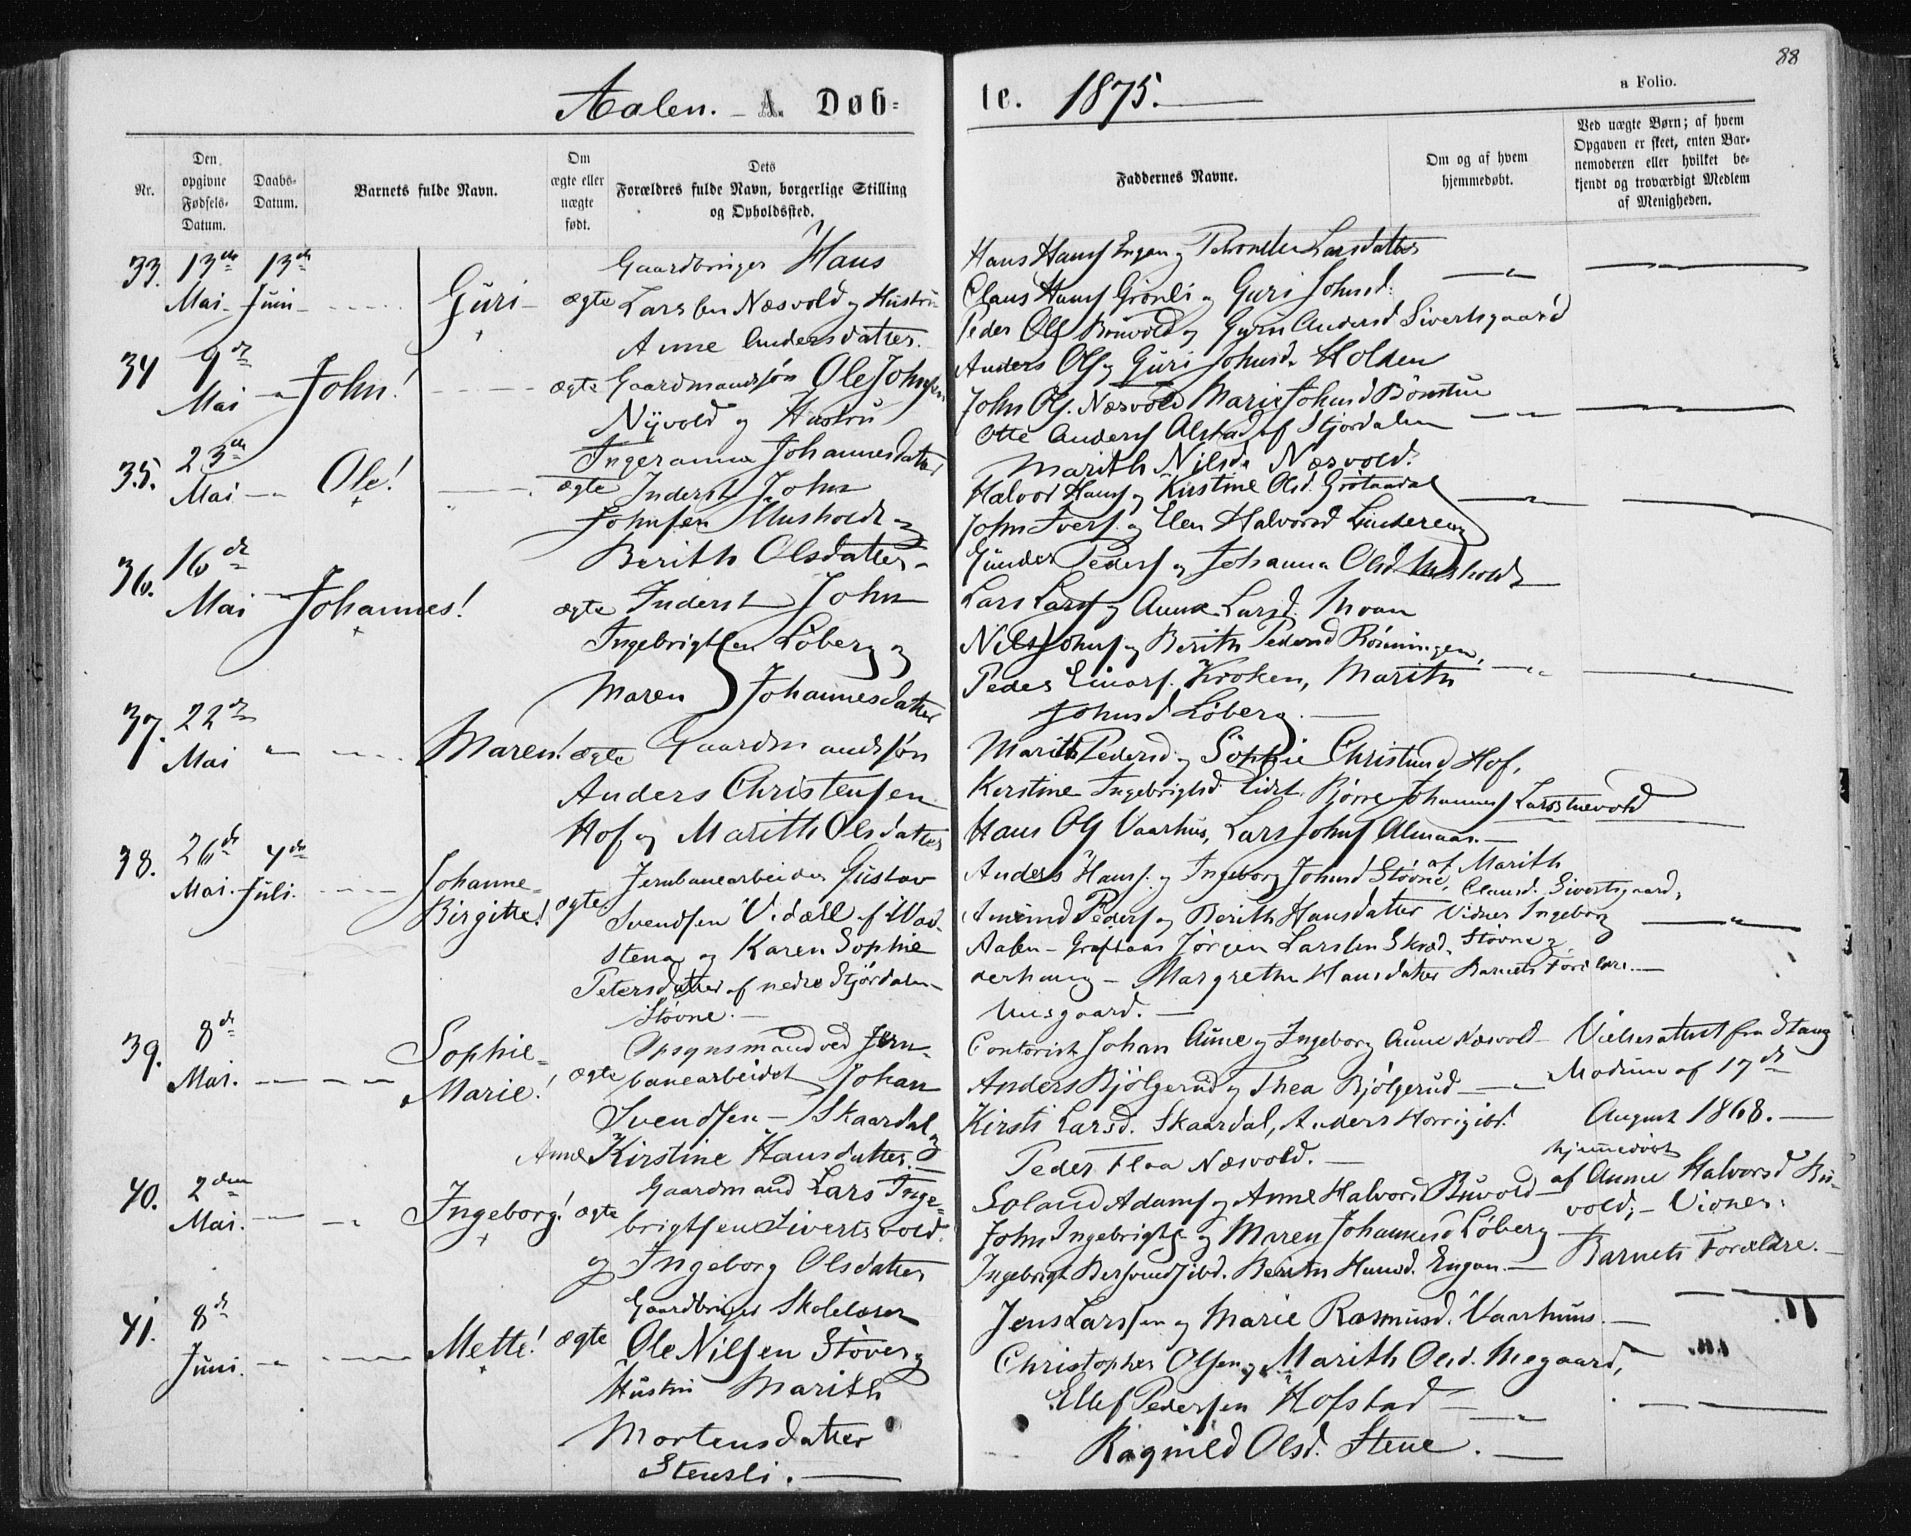 88
Aalen. A. Døb=
te. 1875.
a Folio.
Nr.
Den opgivne Fødsels-Datum.
Daabs-Datum.
Barnets fulde Navn.
Om ægte eller uægte født.
Dets Forældres fulde Navn, borgerlige Stilling og Opholdssted.
Faddernes Navne.
Om og af hvem hjemmedøbt.
Ved uægte Børn; af hvem Opgaven er skeet, enten Barnemoderen eller hvilket betjendt og troværdigt Medlem af Menigheden.
33. 13de Mai 13de Juni Guri
ægte Gaardbruger Hans
Larssen Næsvold og Hustru
Anne Andersdatter.
Hans Hansf Engen og Larsdatter
Claus Hansf Grønli og Guri Johnsd.
Peder Olsf Bruvold og Guru Andersd Sivertsgaard
Anders Olsf og Guri Johnsd. Holden
34 9de Mai John!
ægte Gaardmandssøn Ole Johnsen
Nyvold og Hustru
Ingeranna Johannesdatter
John Olsf. Næsvold Marie Johnsd Bønstue
Otte Andersf Alstad af Stjordalen
Marith Nilsd. Næsvold.
35. 23de Mai Ole!
ægte Inderst John
Johnsen Musholdt og
Berith Olsdatter
Halvor Hansf og Kirstine Olsd. Grøtaadal
John Iversf. og Elen Halvorsd
Gunder Pedersf og Johanna Olsd Musholdt
36. 16de Mai Johannes!
ægte Inderst John
Ingebrigtsen Løberg og
Maren Johannesdatter
Lars Larsf og Anne Larsd. Moan
Nils Johnsf og Berith Pedersd Rønningen,
Peder Einarsf. Kroken, Marith
Johnsd Løberg.
37. 22de Mai Maren!
ægte Gaardmandssøn
Anders Christensen
Hof og Marith Olsdatter
Marith Pedersd. og Sophie Christensd Hof,
Kerstine Ingebrigtsd. Bjørn Johannesf
Hans Olsf Vaarhus, Lars Johnsf Almaas.
38. 26de Mai. 4de Juli. Johanne-
Birgitte!
ægte. Jernbanearbeider Gustav
Svendsen Vidæll af Wad-
stena og Karen Sophie
Petersdatter af nedre Stjørdalen
Støvne.
Anders Hansf. og Ingeborg Johnsd Støvne, af Marith
Clausd. Sivertsgaard,
Pedersf og Berith Hansdatter Vidner Ingeborg
Aalen - Graftaas Jørgen Larssen Skræd- Støvne og
derhaug - Margrethe Hansdatter Barnets Forældre.
39. 8de Mai. Sophie-
Marie!
ægte Opsynsmand ved Jern-
banearbeidet Johan
Svendsen - Skaardal og
Anne Kirstine Hansdatter.
Contorist Johan Aune og Ingeborg Aune Næsvold
Anders Bjølgerud og Thea Bjølgerud
Kirsti Larsd. Skaardal, Anders
Peder Flaa Næsvold.
Vielsesattest fra Stang
af 17de
August 1868.
40. 2den Mai. Ingeborg!
ægte Gaardmand Lars Inge-
brigtsen Sivertsvold.
og Ingeborg Olsdatter
Adamsf og Anne Halvorsd Buvold
John Ingebrigtsf og Maren Johannesd Løberg
Ingebrigt ibd. Berith Hansd. Engan.
hjemmedøbt
af Anne Halvorsd Bu-
vold; - Vidner:
Barnets Forældre.
41. 8de Juni. Mette!
ægte Gaardbruger Skolelærer
Ole Nilsen Støver og
Hustru Marith
Mortensdatter
Stensli.
Jens Larssen og Marie Rasmusd. Vaarhuus.
Christopher Olsen og Marith Olsd. Megaard,
Ellef Pedersen Hofstad
Ragnild Olsd. Stene.